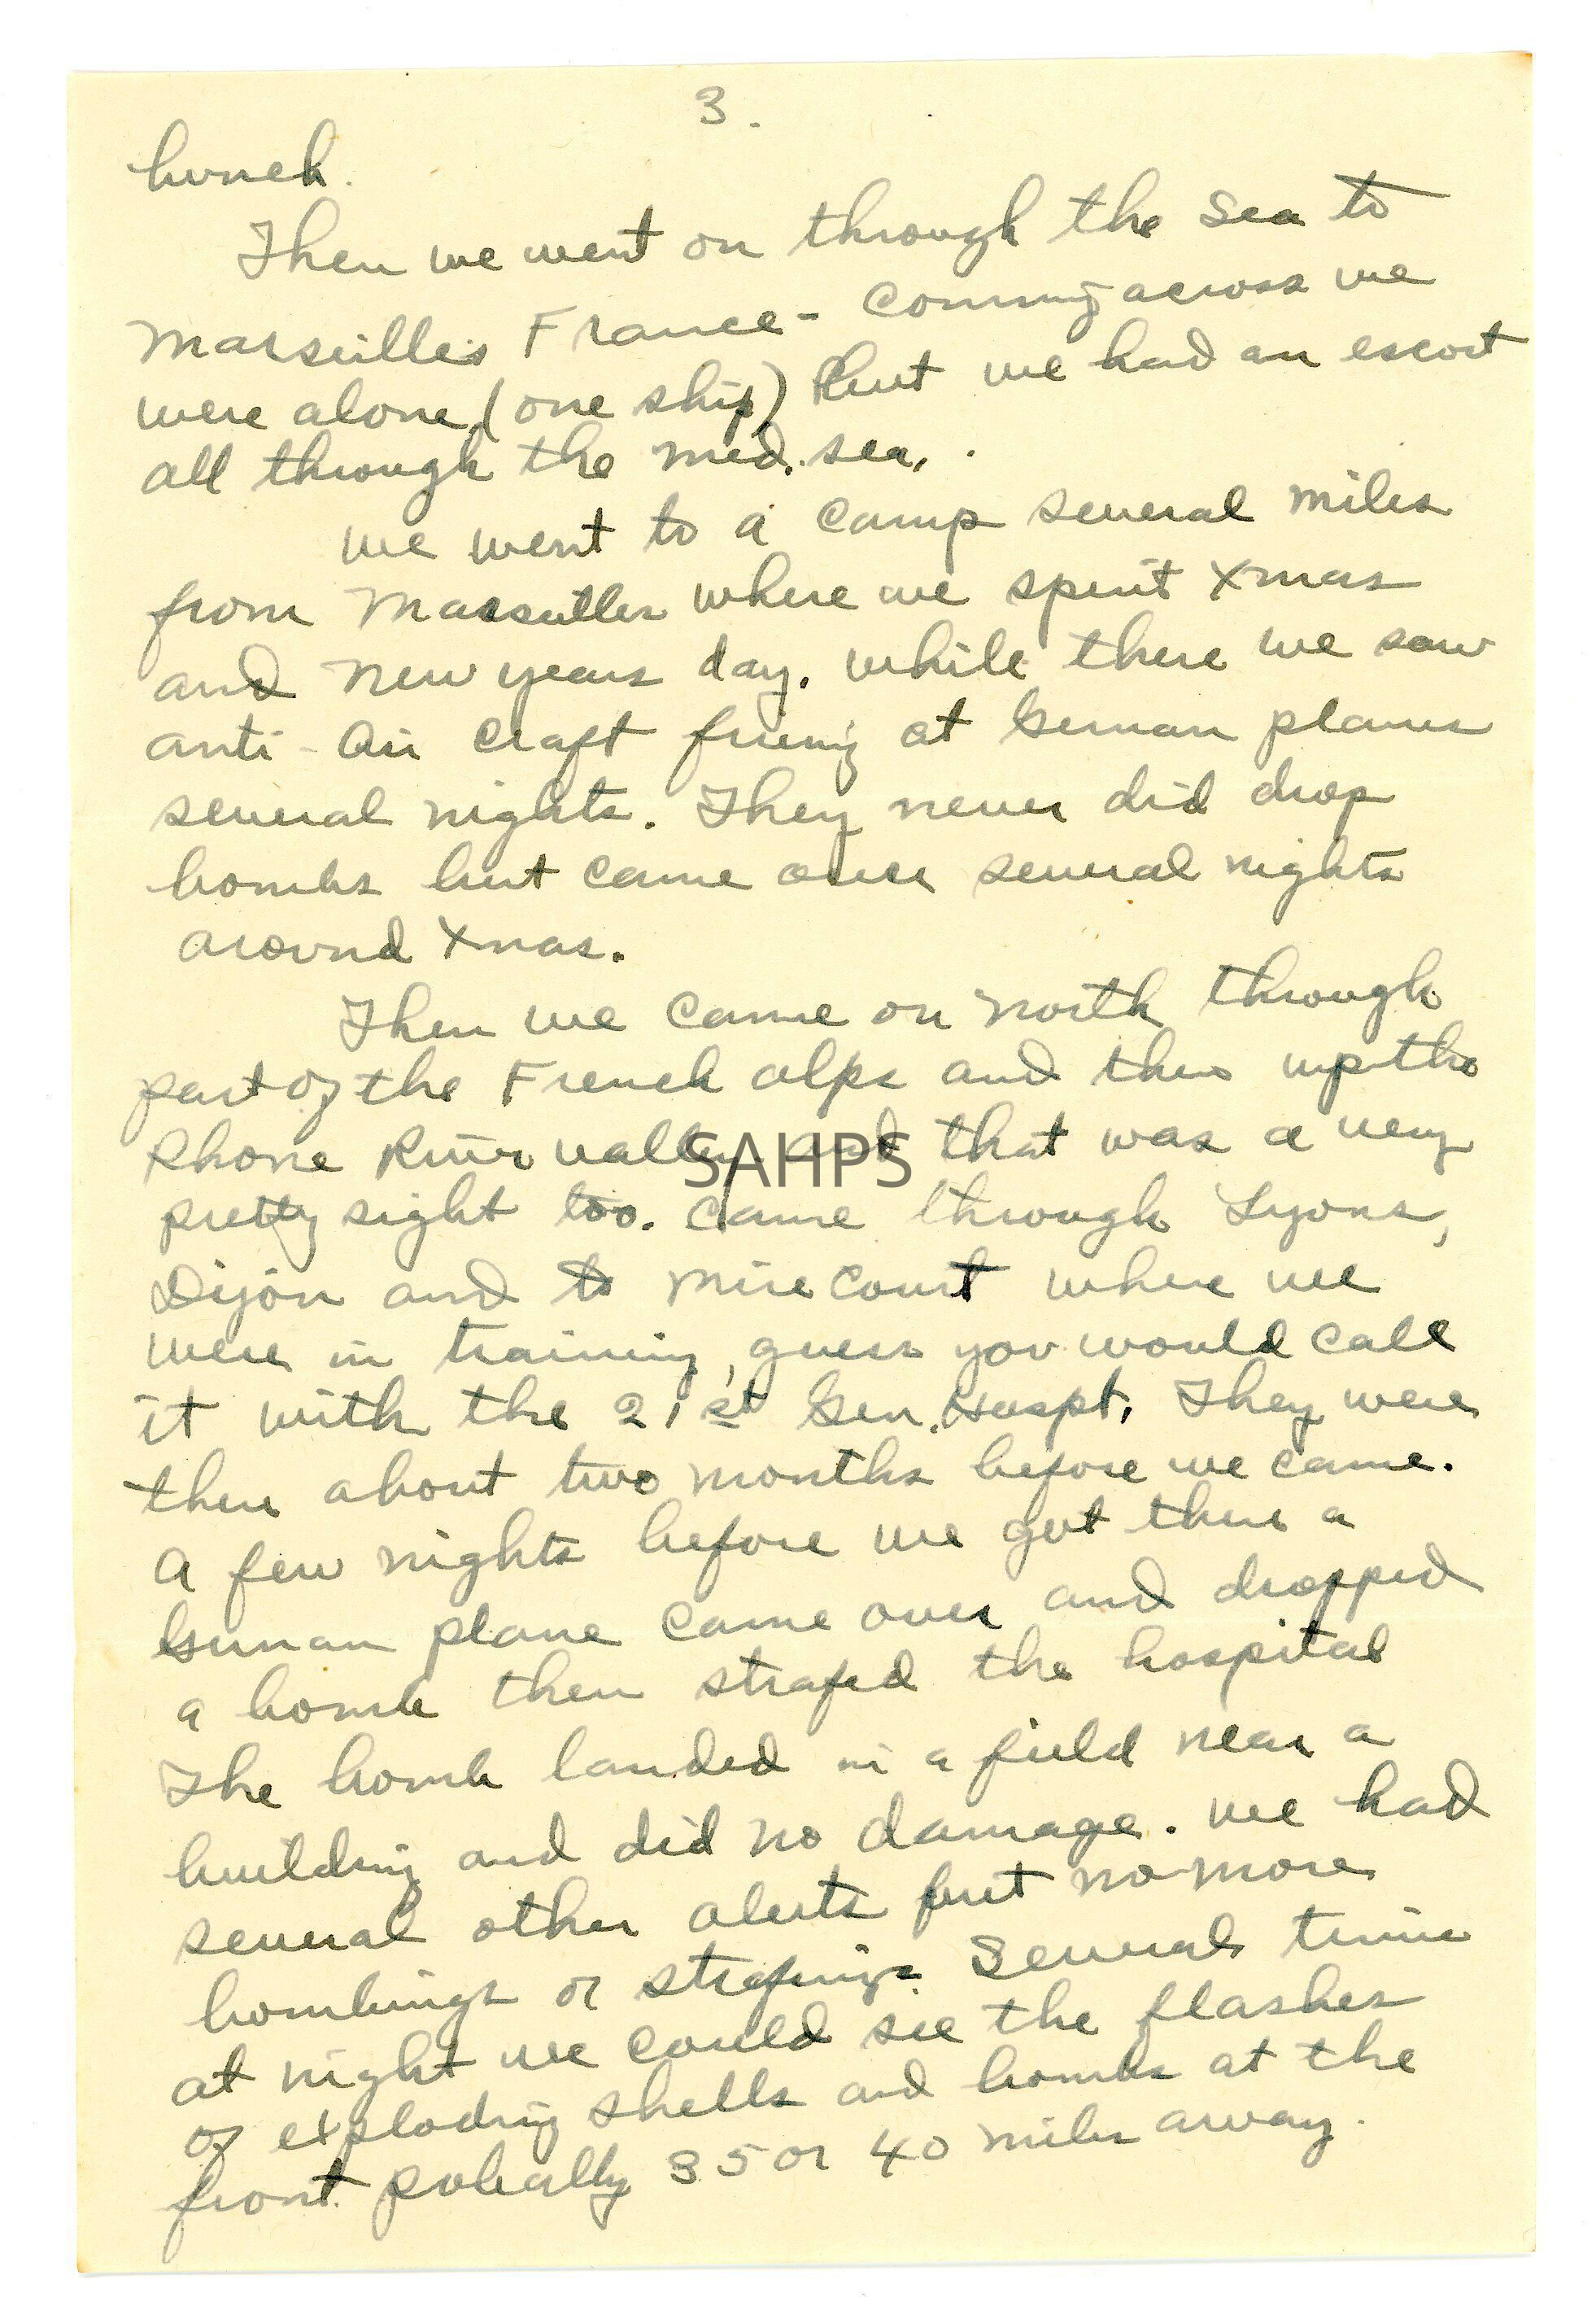 3.
bunch.
Then we went on through the sea to
Marseilles France - coming across we
were alone, (one ship) But we had an escort
all through the med. sea.
we went to a camp several miles
from Marseilles where we spent Xmas
and New years day. while there we saw
anti-air craft firing at German planes
several nights. They never did drop
bombs but came over several nights
around Xmas.
Then we came on north through
part of the French alps and then up the
Rhone River valley and that was a very
SAHPS
pretty sight too. Came through Lyons,
Dijon and to Mirecourt where we
were in training, guess you would call
it with the 21st Gen. Hospt. They were
there about two months before we came.
A few nights before we got there a
German plane came over and dropped
a bomb then strafed the hospital
The bomb landed in a field near a
building and did no damage. we had
several other alerts but no more
bombings or strafings. Several times
at night we could see the flashes
of exploding shells and bombs at the
front probally 35 or 40 miles away.